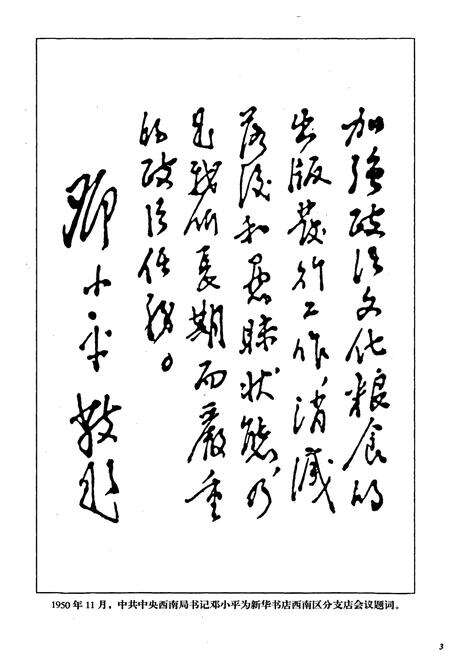 加強政治文化粮食的
出版發行工作，消滅
落後和愚昧状態，乃
是我們長期而嚴重
的政治任務。
鄧小平敬題
1950年11月，中共中央西南局书记邓小平为新华书店西南区分支店会议题词。
3